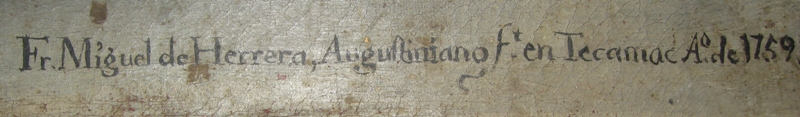 Fr. Miguel de Herrera, Augustiniano f.t en Tecamac Aº. de 1759.